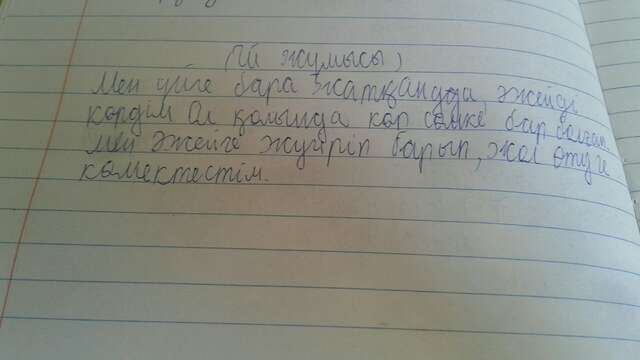 (Үй жұмысы)
Мен үйге бара жатқанда, әжейді
көрдім Ол қолында көр сөмке бар болған
мен әжейге жүгіріп барып, жол өтуге
көмектестім.